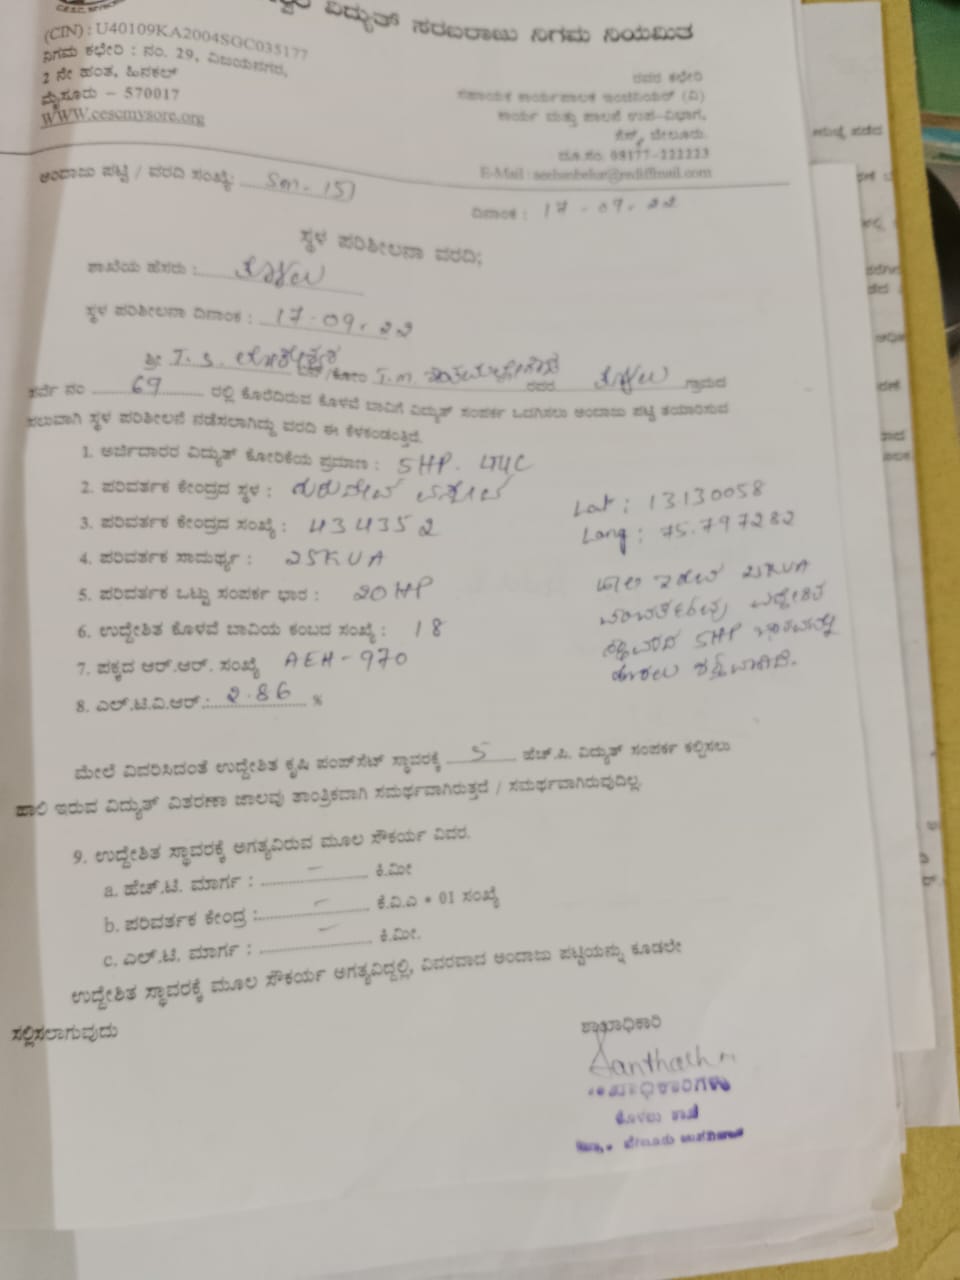 ವಿದ್ಯುತ್ ಸರಬರಾಜು ನಿಗಮ ನಿಯಮಿತ
(CIN) : U40109KA2004SGC035177
ನಿಗಮ ಕಛೇರಿ : ನಂ. 29, ವಿಜಯನಗರ,
2 ನೇ ಹಂತ, ಹಿನಕಲ್
ಮೈಸೂರು – 570017
WWW.cescmysore.org
ರವರ ಕಛೇರಿ
ಸಹಾಯಕ ಕಾರ್ಯಪಾಲಕ ಇಂಜಿನಿಯರ್ (ವಿ)
ಕಾರ್ಯ ಮತ್ತು ಪಾಲನೆ ಉಪ-ವಿಭಾಗ,
ಸೆಸ್ಕ್, ಬೇಲೂರು.
ದೂ.ಸಂ. 08177-222223
E-Mail : aeebebelur@rediffmail.com
ಅಂದಾಜು ಪಟ್ಟಿ / ವರದಿ ಸಂಖ್ಯೆ: Sm - 151
ದಿನಾಂಕ : 17 - 09. 22
ಸ್ಥಳ ಪರಿಶೀಲನಾ ವರದಿ;
ಶಾಖೆಯ ಹೆಸರು :
ಸ್ಥಳ ಪರಿಶೀಲನಾ ದಿನಾಂಕ : 17-09. 22
ಶ್ರೀ T. S. ಲೋಕೇಶ್ವರ /ಕೋಂ T. m. ರವರ ಗ್ರಾಮದ
ಸರ್ವೆ ನಂ 69 ರಲ್ಲಿ ಕೊರೆದಿರುವ ಕೊಳವೆ ಬಾವಿಗೆ ವಿದ್ಯುತ್ ಸಂಪರ್ಕ ಒದಗಿಸಲು ಅಂದಾಜು ಪಟ್ಟಿ ತಯಾರಿಸುವ
ಸಲುವಾಗಿ ಸ್ಥಳ ಪರಿಶೀಲನೆ ನಡೆಸಲಾಗಿದ್ದು ವರದಿ ಈ ಕೆಳಕಂಡಂತ್ತಿದೆ.
1. ಅರ್ಜಿದಾರರ ವಿದ್ಯುತ್ ಕೋರಿಕೆಯ ಪ್ರಮಾಣ : 5HP.
2. ಪರಿವರ್ತಕ ಕೇಂದ್ರದ ಸ್ಥಳ :
3. ಪರಿವರ್ತಕ ಕೇಂದ್ರದ ಸಂಖ್ಯೆ : 434352
4. ಪರಿವರ್ತಕ ಸಾಮರ್ಥ್ಯ : 25KVA
5. ಪರಿವರ್ತಕ ಒಟ್ಟು ಸಂಪರ್ಕ ಭಾರ : 20 HP
6. ಉದ್ದೇಶಿತ ಕೊಳವೆ ಬಾವಿಯ ಕಂಬದ ಸಂಖ್ಯೆ : 18
7. ಪಕ್ಕದ ಆರ್.ಆರ್. ಸಂಖ್ಯೆ AEH - 970
8. ಎಲ್.ಟಿ.ವಿ.ಆರ್.: 2.86 %
Lat : 13130058
Long : 75.797282
ಹಾಲಿ ಇರುವ 25KVA
ಪರಿವರ್ತಕವು ಉದ್ದೇಶಿತ
5HP ಭಾರವನ್ನು
ಮೇಲೆ ವಿವರಿಸಿದಂತೆ ಉದ್ದೇಶಿತ ಕೃಷಿ ಪಂಪ್‌ಸೆಟ್ ಸ್ಥಾವರಕ್ಕೆ 5 ಹೆಚ್.ಪಿ. ವಿದ್ಯುತ್ ಸಂಪರ್ಕ ಕಲ್ಪಿಸಲು
ಹಾಲಿ ಇರುವ ವಿದ್ಯುತ್ ವಿತರಣಾ ಜಾಲವು ತಾಂತ್ರಿಕವಾಗಿ ಸಮರ್ಥವಾಗಿರುತ್ತದೆ / ಸಮರ್ಥವಾಗಿರುವುದಿಲ್ಲ.
9. ಉದ್ದೇಶಿತ ಸ್ಥಾವರಕ್ಕೆ ಅಗತ್ಯವಿರುವ ಮೂಲ ಸೌಕರ್ಯ ವಿವರ.
a. ಹೆಚ್.ಟಿ. ಮಾರ್ಗ : – ಕಿ.ಮೀ
b. ಪರಿವರ್ತಕ ಕೇಂದ್ರ : – ಕೆ.ವಿ.ಎ * 01 ಸಂಖ್ಯೆ
c. ಎಲ್.ಟಿ. ಮಾರ್ಗ : – ಕಿ.ಮೀ.
ಉದ್ದೇಶಿತ ಸ್ಥಾವರಕ್ಕೆ ಮೂಲ ಸೌಕರ್ಯ ಅಗತ್ಯವಿದ್ದಲ್ಲಿ, ವಿವರವಾದ ಅಂದಾಜು ಪಟ್ಟಿಯನ್ನು ಕೂಡಲೇ
ಸಲ್ಲಿಸಲಾಗುವುದು
ಶಾಖಾಧಿಕಾರಿ